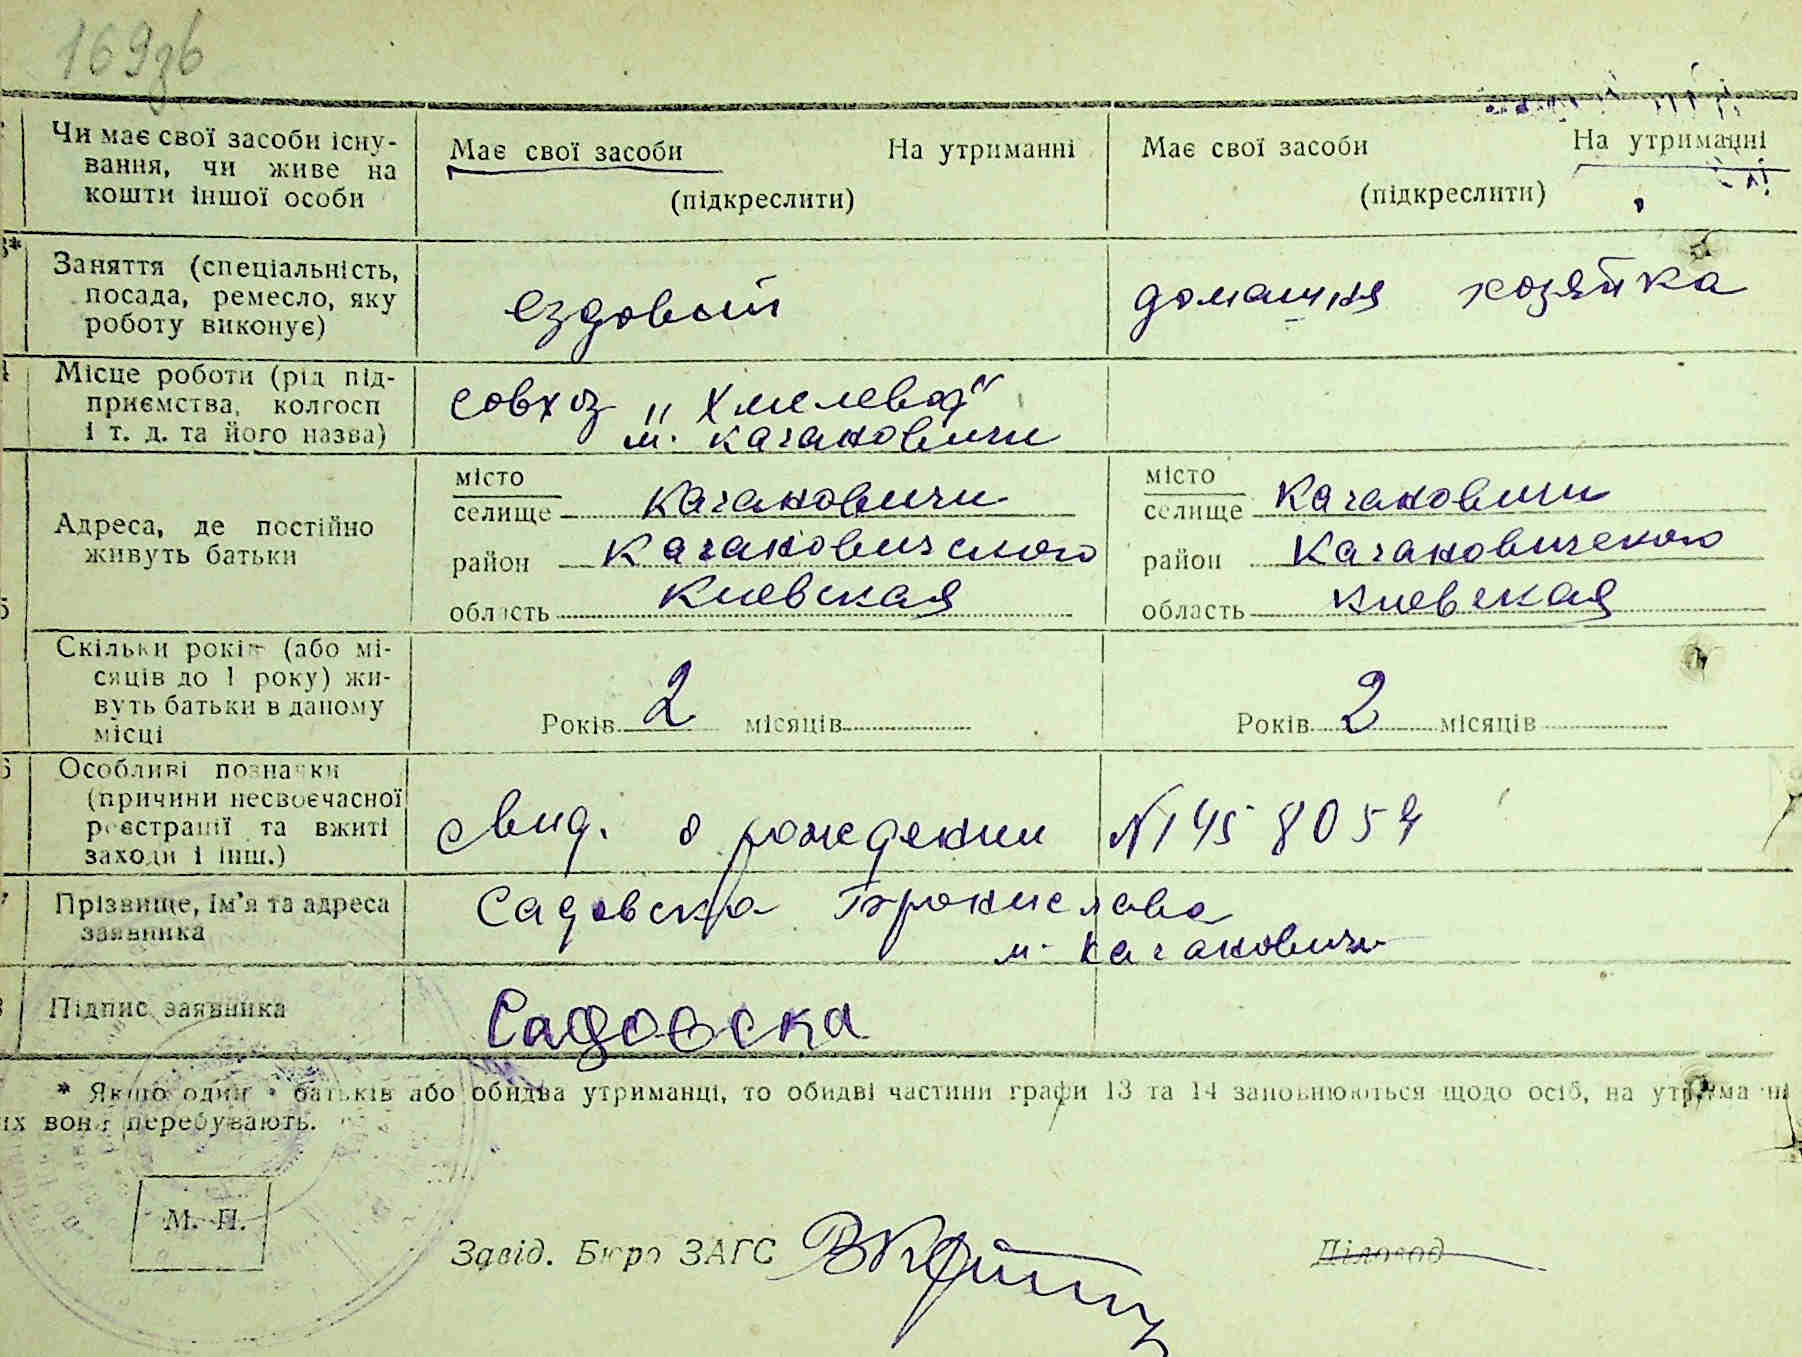 169зв
Чи має свої засоби існу-
вання, чи живе на
кошти іншої особи
Має свої засоби На утриманні
(підкреслити)
Має свої засоби На утриманні
(підкреслити)
Заняття (спеціальність,
посада, ремесло, яку
роботу виконує)
ездовый
домашня хозяйка
Місце роботи (рід під-
приємства, колгосп
і т. д. та його назва)
совхоз "Хмелевод"
м. Кагановичи
Адреса, де постійно
живуть батьки
місто
селище Кагановичи
район Кагановичского
область Киевская
місто
селище Кагановичи
район Кагановического
область Киевская
Скільки років (або мі-
сяців до 1 року) жи-
вуть батьки в даному
місці
Років 2 місяців
Років 2 місяців
Особливі позначки
(причини несвоєчасної
реєстрації та вжиті
заходи і інш.)
Свид. о рождении № 1458054
Прізвище, ім'я та адреса
заявника
Садовска Бронислава
м. Кагановичи
Підпис заявника
Садовска
* Якщо один з батьків або обидва утриманці, то обидві частини графи 13 та 14 заповнюються щодо осіб, на утриманні
їх вони перебувають.
М. П.
Завід. Бюро ЗАГС
Діловод